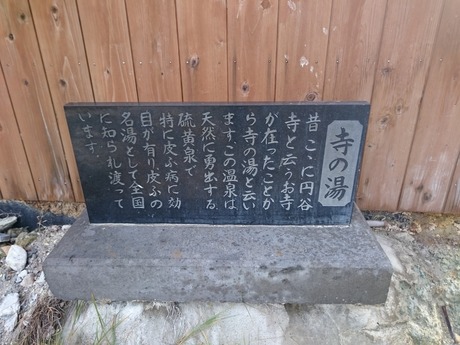 寺の湯
昔ここに円谷
寺と云うお寺
が在ったことか
ら寺の湯と云い
ますこの温泉は
天然に勇出する
硫黄泉で
特に皮ふ病に効
目が有り皮ふの
名湯として全国
に知られ渡って
います